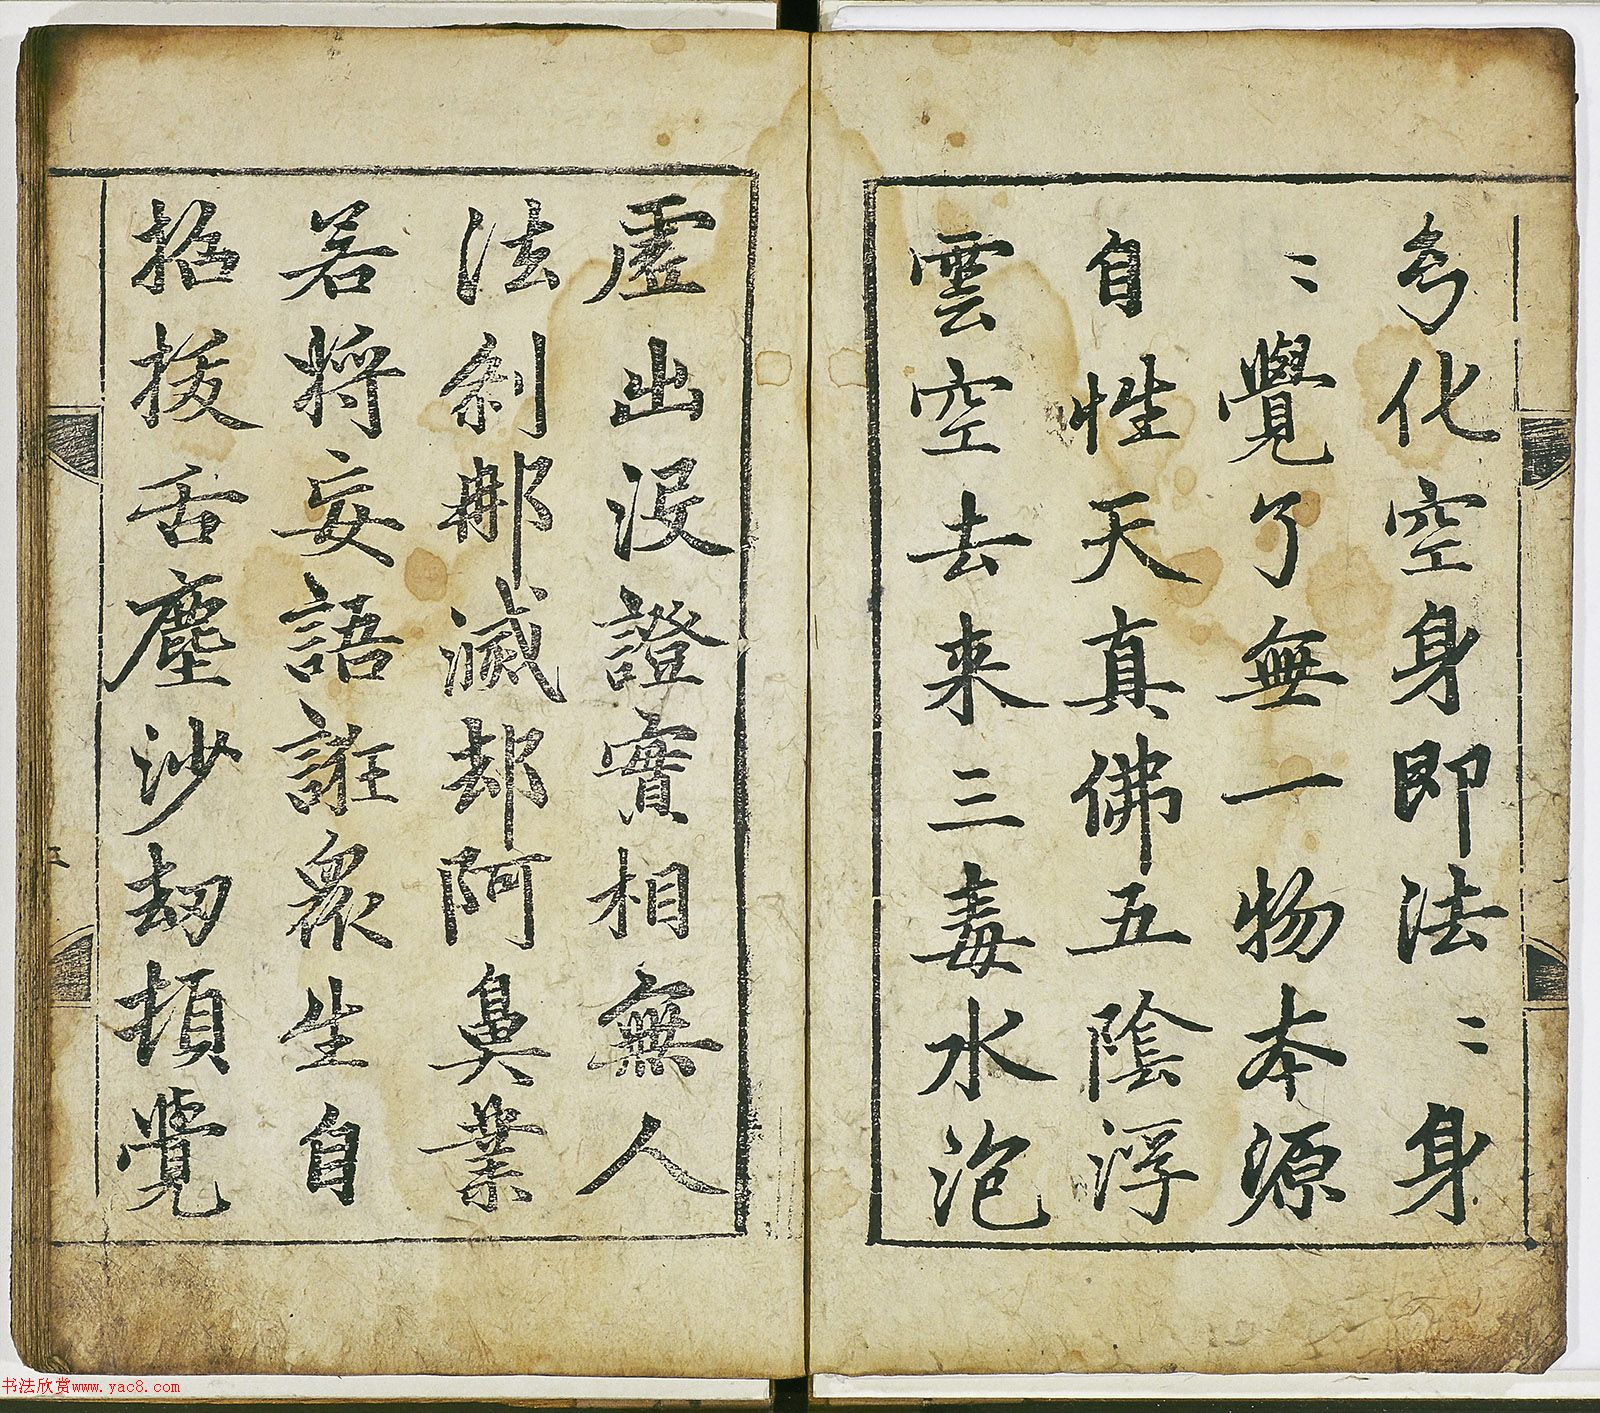 幻化空身即法〻身
〻覺了無一物本源
自性天真佛五陰浮
雲空去來三毒水泡
虛出没證實相無人
法刹那滅却阿鼻業
若將妄語誑衆生自
招拔舌塵沙劫頓覺
三
书法欣赏www.yac8.com